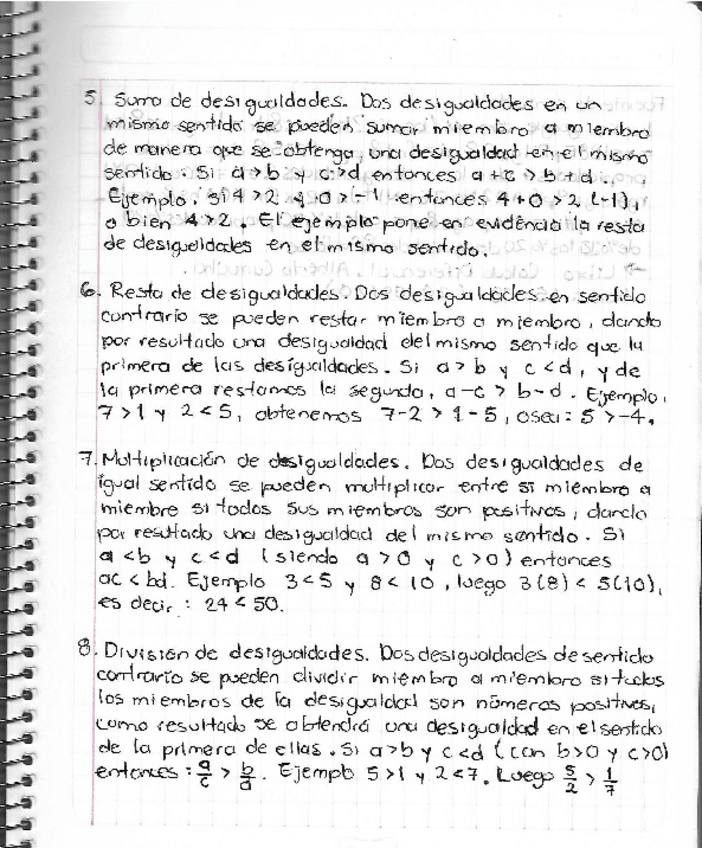 5. Suma de desigualdades. Dos desigualdades en un
mismo sentido se pueden sumar miembro a miembro
de manera que se obtenga una desigualdad en el mismo
sentido. Si a>b y c>d entonces a+c > b+d.
Ejemplo, si 4>2 y 0>-1 entonces 4+0 > 2 (-1),
o bien 4>2. El ejemplo pone en evidencia la resta
de desigualdades en el mismo sentido.
6. Resta de desigualdades. Dos desigualdades en sentido
contrario se pueden restar miembro a miembro, dando
por resultado una desigualdad del mismo sentido que la
primera de las desigualdades. Si a>b y c<d, y de
la primera restamos la segunda, a-c > b-d. Ejemplo,
7>1 y 2<5, obtenemos 7-2 > 1-5, osea: 5 >-4.
7. Multiplicación de desigualdades. Dos desigualdades de
igual sentido se pueden multiplicar entre si miembro a
miembre si todos sus miembros son positivos, dando
por resultado una desigualdad del mismo sentido. Si
a<b y c<d (siendo a>0 y c>0) entonces
ac < bd. Ejemplo 3<5 y 8<10, luego 3(8) < 5(10),
es decir: 24<50.
8. División de desigualdades. Dos desigualdades de sentido
contrario se pueden dividir miembro a miembro si todos
los miembros de la desigualdad son números positivos,
como resultado se obtendrá una desigualdad en el sentido
de la primera de ellas. Si a>b y c<d (con b>0 y c>0)
entonces: a/c > b/d. Ejemplo 5>1 y 2<7. Luego 5/2 > 1/7